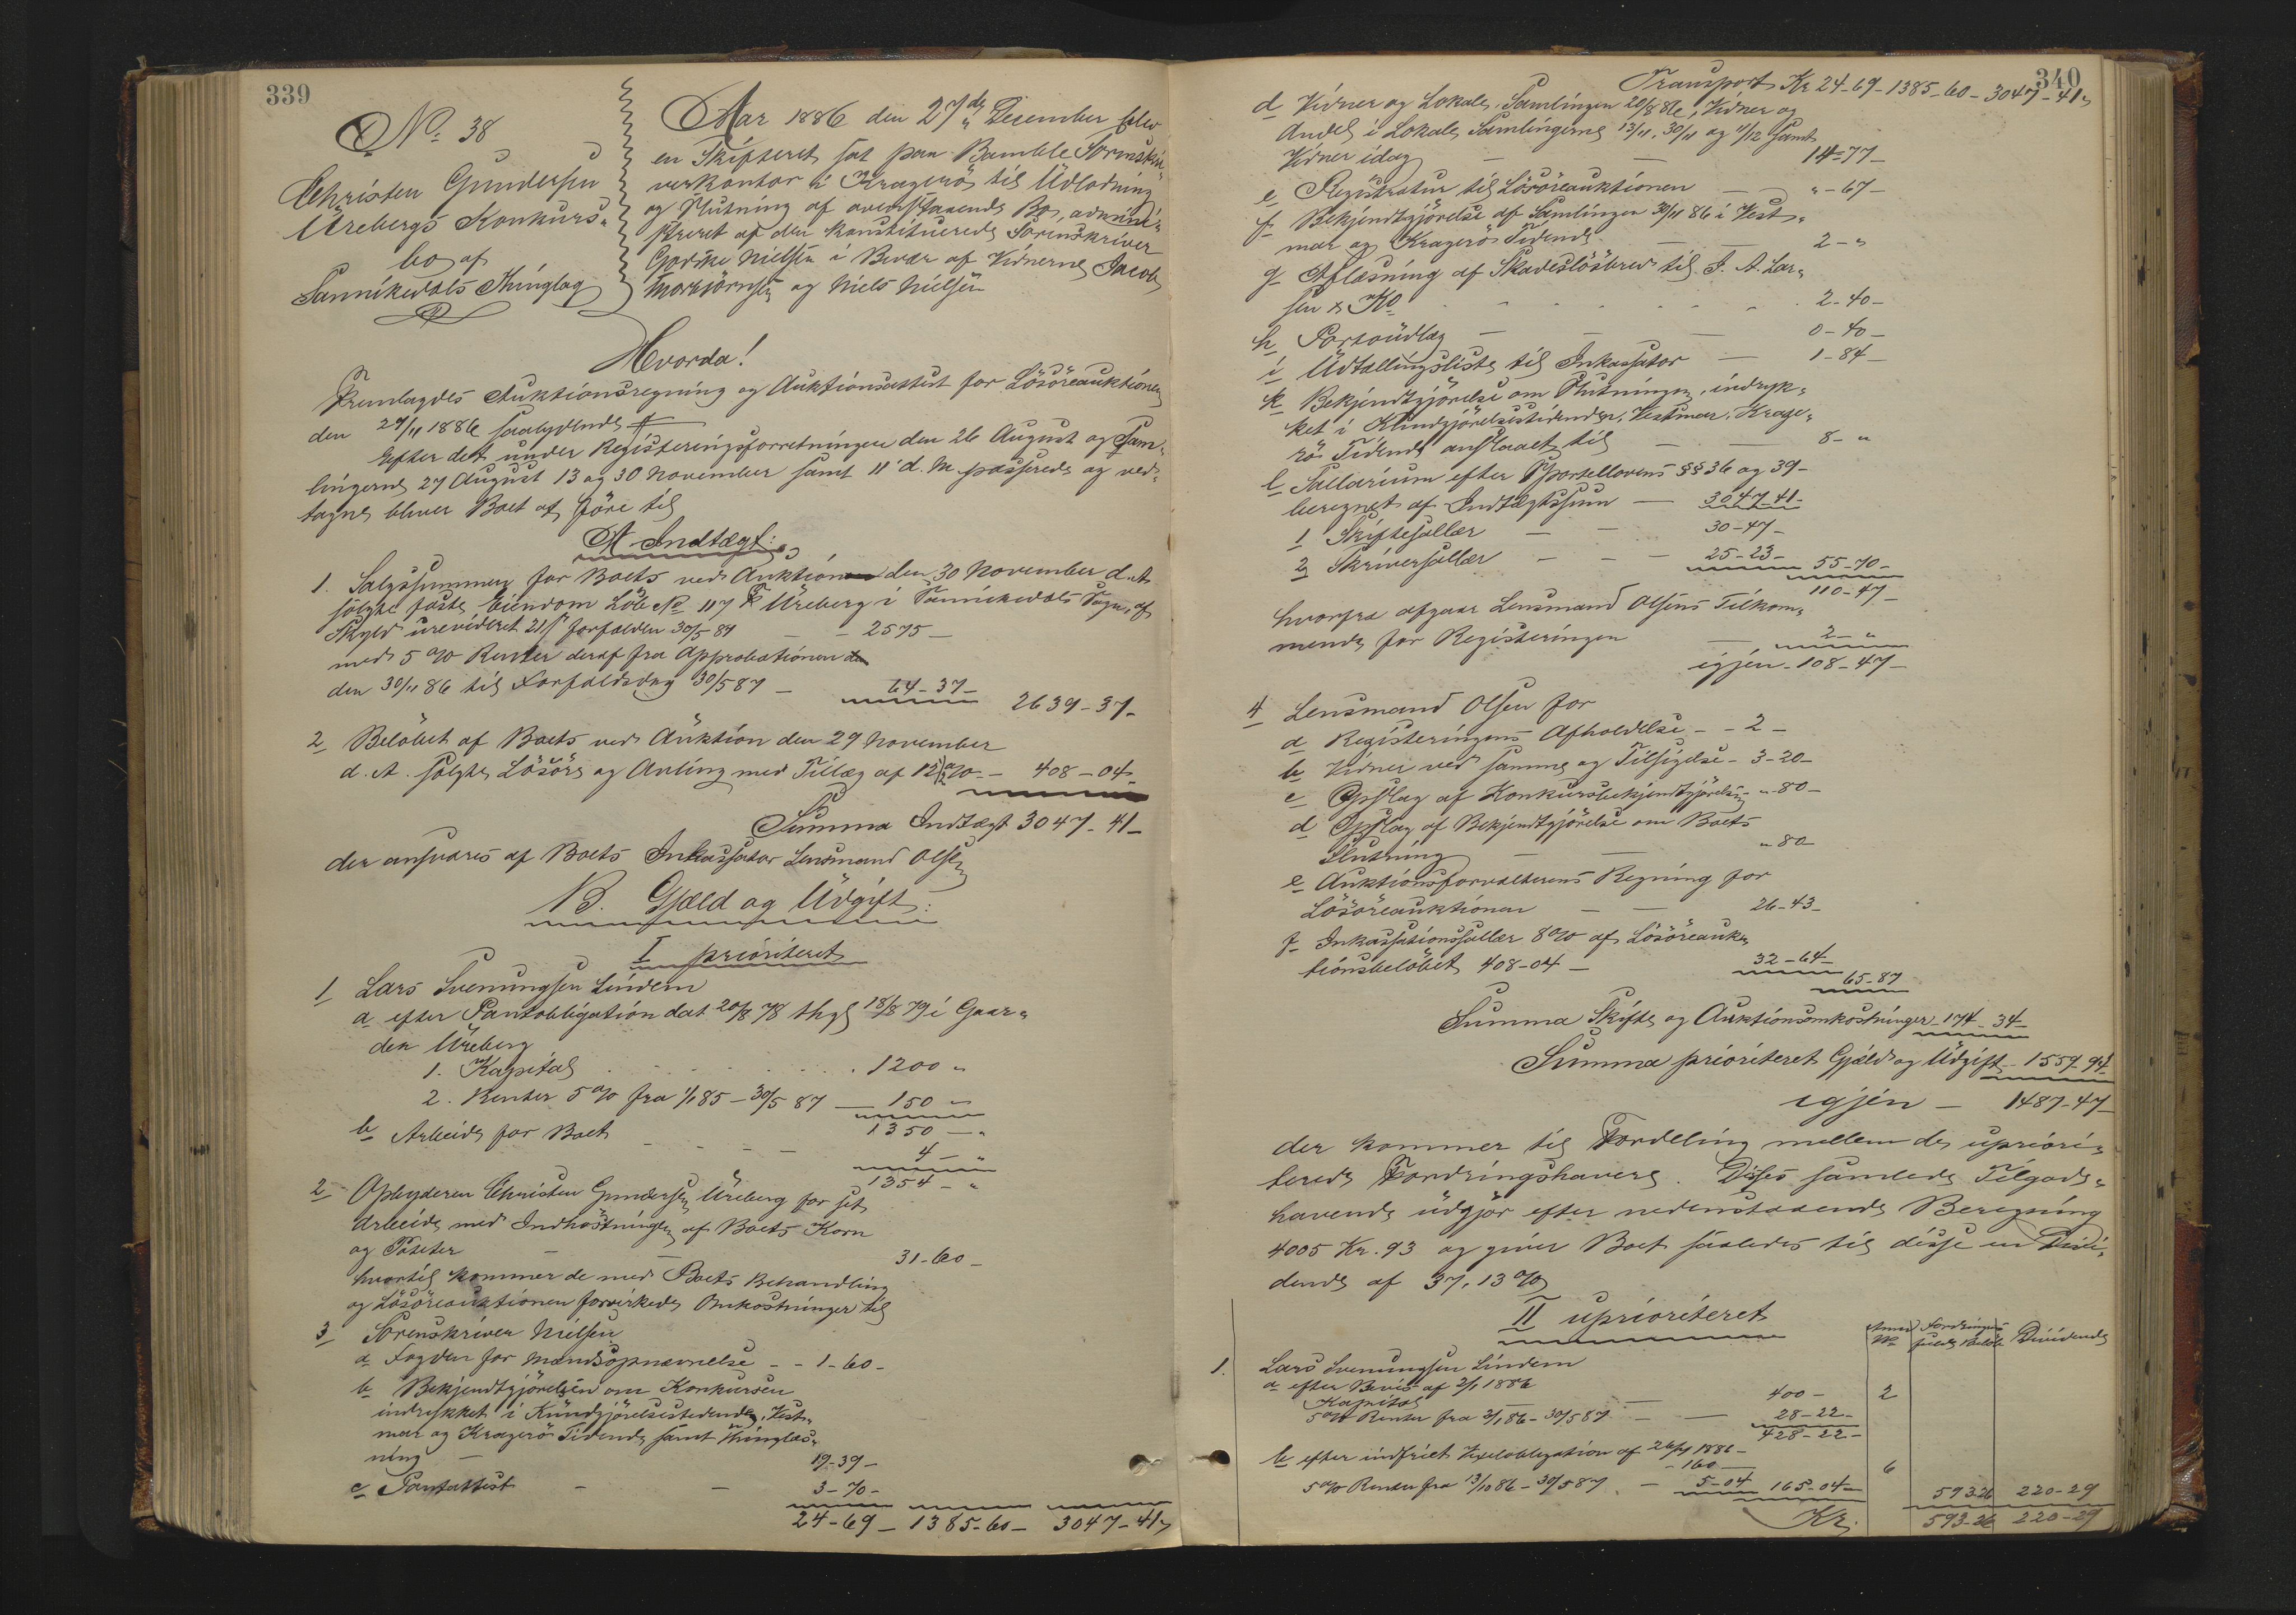 339
No 38
Christen Gundersen
Urebergs Konkurs-
bo af
Sannikedals Thinglag
Aar 1886 den 27de Desember blev
en Skifteret sat paa Bamble Sorenskri-
verkontor i Kragerö til Udlodning
og Slutning af ovenstaaende Bo, admini-
streret af den konstituerede Sorenskriver
Godske Nielsen i Nervær af Vidnerne Jacob
Morbjörnsen og Niels Nielsen
Hvorda!
Fremlagdes Auktionsregning og Auktionsattest for Lösöreauktionen
den 29/11 1886 saalydende #
Efter det under Registeringsforretningen den 26 August og Sam-
lingerne 27 August 13 og 30 November samt 11' d. M. passerede og ved-
tagne bliver Boet at före til
A Indtægt:
1. Salgssummen for Boets ved Auktion den 30 November d. A.
solgte faste Eiendom Löb No 117 Ureberg i Sannikedals Sogn, af
Skyld urevideret 21 forfalden 30/5 87 - - 2575 -
med 5 % Renter deraf fra Approbationen
den 30/11 86 til Forfaldsdag 30/5 87 - 64-37- 2639-37-
2 Belöbet af Boets ved Auktion den 29 November
d. A. solgte Lösöre og Avling med Tillæg af 12½ % - 408-04-
Summa Indtægt 3047-41-
der ansvares af Boets Inkassator Lensmand Olsen
B. Gjæld og Udgift:
I prioriteret
1 Lars Svenungsen Lindem
a efter Pantobligation dat 20/8 78 thgl 18/8 79 i Gaar-
den Ureberg
1. Kapital . . . . . . 1200 "
2. Renter 5 % fra 1/1 85 - 30/5 87 - 150 "
1350 - "
b Arbeide for Boet - - - 4 - "
1354 - "
2 Opbyderen Christen Gundersen Ureberg for sit
Arbeide med Indhöstningen af Boets Korn
og Poteter - - 31-60-
hvortil kommer de med Boets Behandling
og Lösöreauktionen forvirkede Omkostninger til
3 Sorenskriver Nielsen
a Fogden for Mandsopnævnelse - - 1-60-
b Bekjendtgjörelsen om Konkursen
indrykket i Kundgjörelsestidende, Vest-
mar og Kragerö Tidende samt Thinglæs-
ning - 19-39-
c Pantattest - - 3-70-
24-69- 1385-60- 3047-41-
340
Transport Kr 24-69-1385-60-3047-41-
d Vidner og Lokale, Samlingen 20/8 86, Vidner og
Andel i Lokale Samlingerne 13/11, 30/11 og 11/12 samt
Vidner idag - - 14-77-
e Registratur til Lösöreauktionen - "-67-
f Bekjendtgjörelse af Samlingen 30/11 86 i Vest-
mar og Kragerö Tidende - - 2-"
g Aflæsning af Skadeslösbrev til J. A. Lar-
sen & Ko. . . . . . 2-40-
h Portoudlæg - - - 0-40-
i Udtallingsliste til Inkassator - 1-84-
k Bekjendtgjörelse om Slutningen, indryk-
ket i Kundgjörelsestidenden, Vestmar, Krage-
rö Tidende anslaaet til - - 8-"
l Sallarium efter Sportellovens §§ 36 og 39-
beregnet af Indtægtssum - 3047 41-
1 Skiftesallær - - 30-47-
2 Skriversallær - - - 25-23- 55-70-
110-47-
hvorfra afgaar Lensmand Olsens Tilkom-
mende for Registeringen - 2-"
igjen - 108-47-
4 Lensmand Olsen for
a Registeringens Afholdelse - - 2-
b Vidner ved samme og Tilsigelse - 3-20-
c Opslag af Konkursbekjendtgjörelsen - "-80-
d Opslag af Bekjendtgjörelse om Boets
Slutning - - "-80-
e Auktionsforvalterens Regning for
Lösöreauktionen - - 26-43-
f Inkassationssallær 8 % af Lösöreauk-
tionsbelöbet 408-04 - 32-64-
65-87
Summa Skifte og Auktionsomkostninger - 174-34-
Summa prioriteret Gjæld og Udgift - 1559-94
igjen - 1487-47-
der kommer til Fordeling mellem de upriori-
terede Fordringshavere. Disses samlede Tilgode-
havende udgjör efter nedenstaaende Beregning
4005 Kr. 93 og giver Boet saaledes til disse en Divi-
dende af 37,13 %
II uprioriteret
Anm No Fordringens fulde Belöb Dividende
1. Lars Svenungsen Lindem
a efter Bevis af 2/1 1886
Kapital - - 400- 2
5 % Renter fra 2/1 86 - 30/5 87 - - 28-22-
428-22-
b efter indfriet Vexelobligation af 1886-
- 160 - 6
5 % Renter fra 13/10 86 - 30/5 87 - 5-04 165-04- 593-26 220-29
Kr. 593-26 220-29